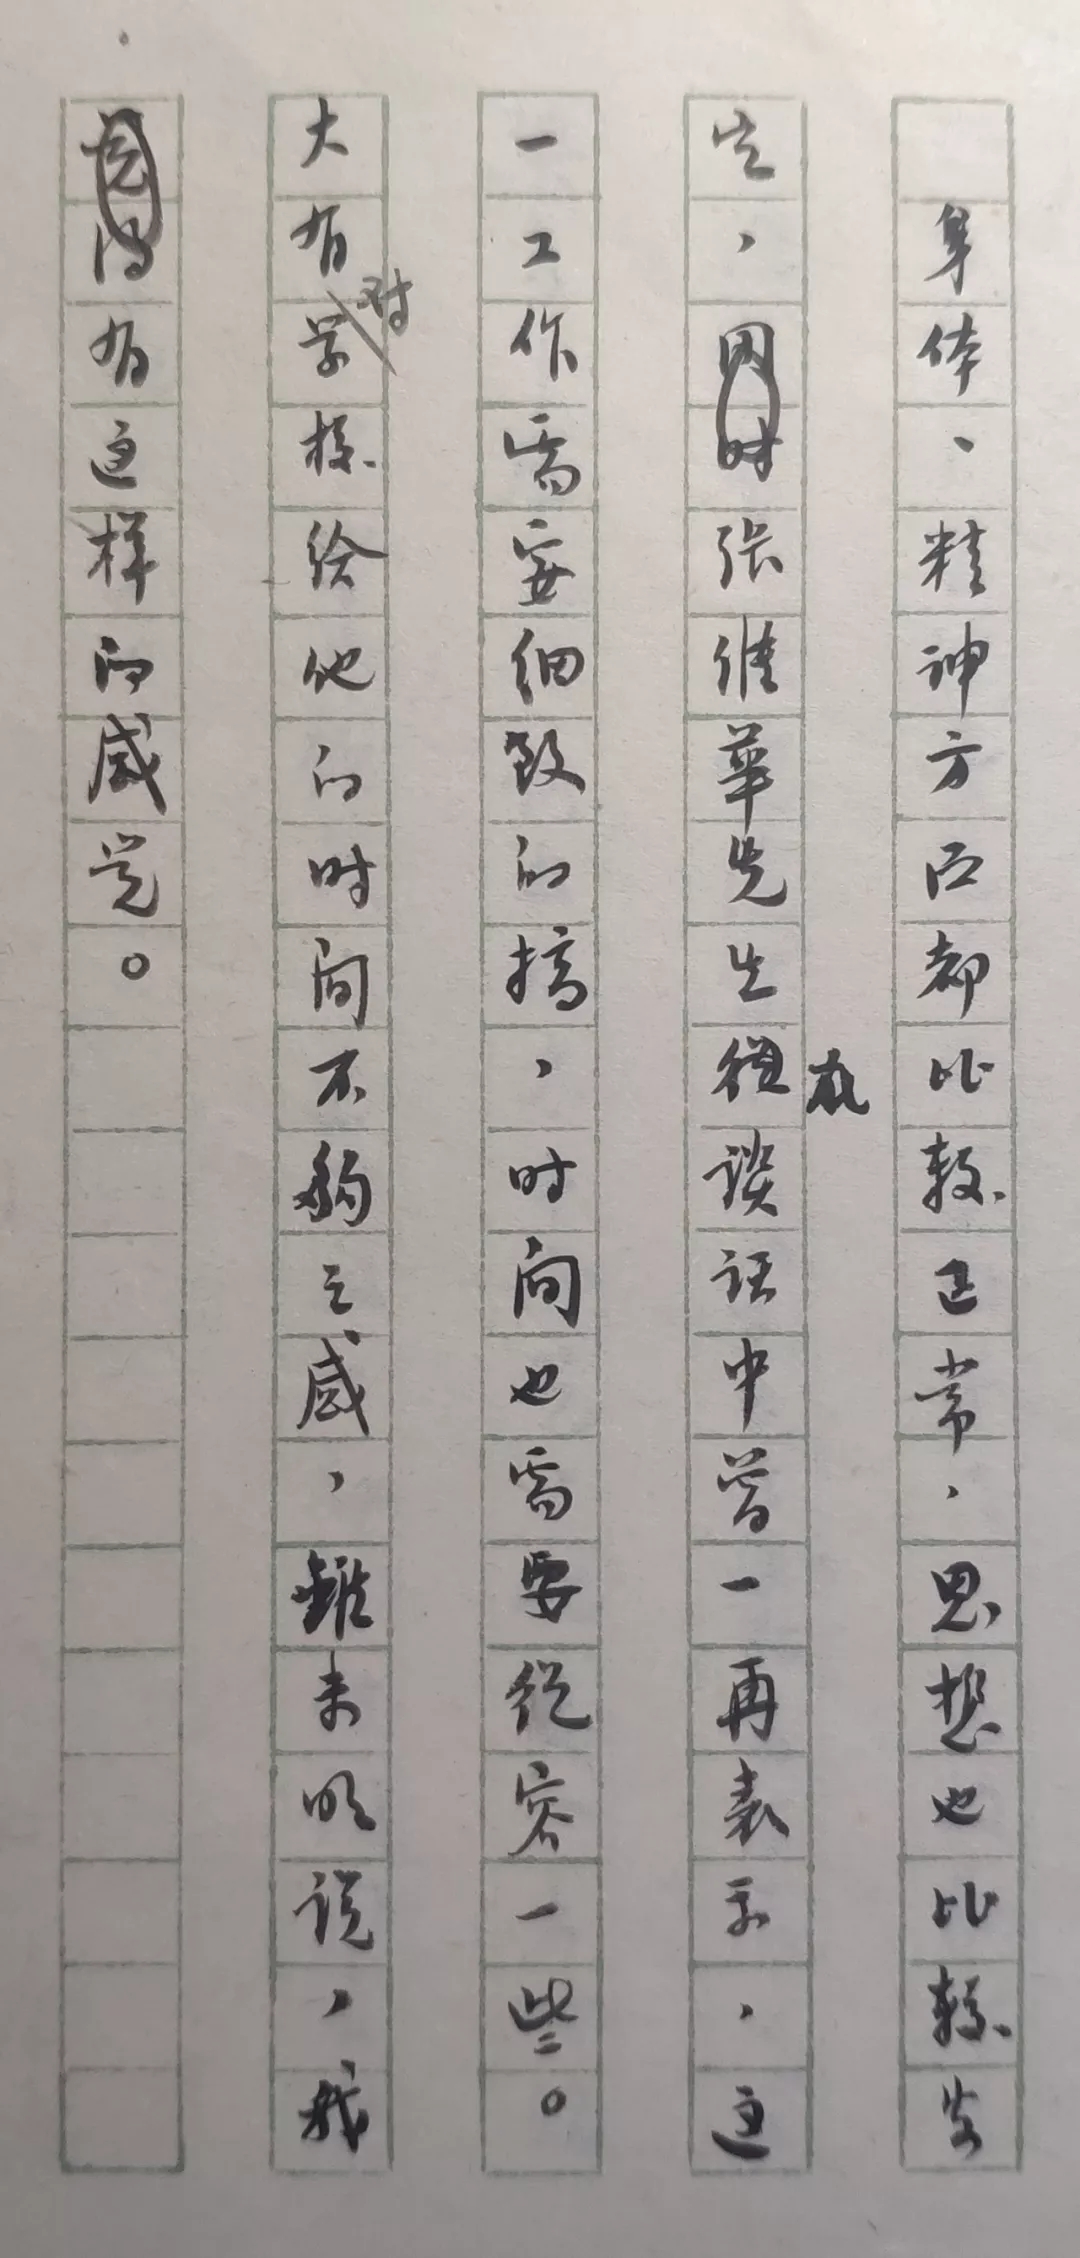 身体、精神方面都比较正常，思想也比较安
定，同时张维華先生在谈话中曾一再表示，这
一工作需要细致的搞，时间也需要从容一些。
大有对学校给他的时间不够之感，雖未明说，我
觉得有这样的感觉。